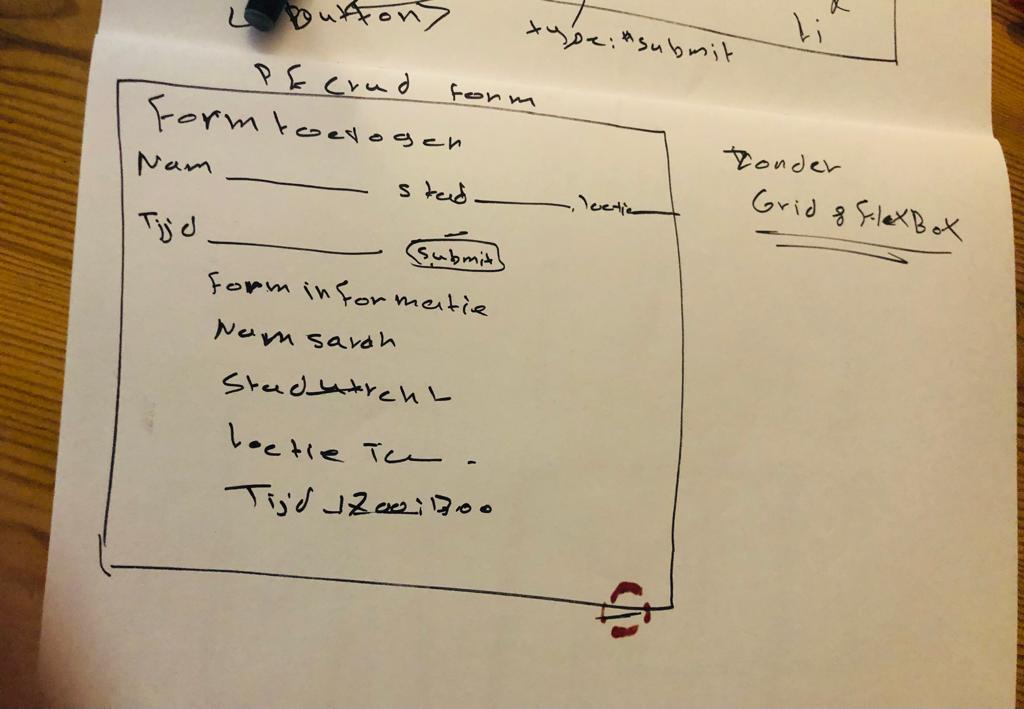 <button>
type: "submit
li
PE Crud form
Form toevogen
Nam ______ stad ______ . loctie ______
Tijd ______ submit
Form informatie
Nam sarah
Stad utrcht
Loctie
Tijd
Zonder
Grid & FlexBox